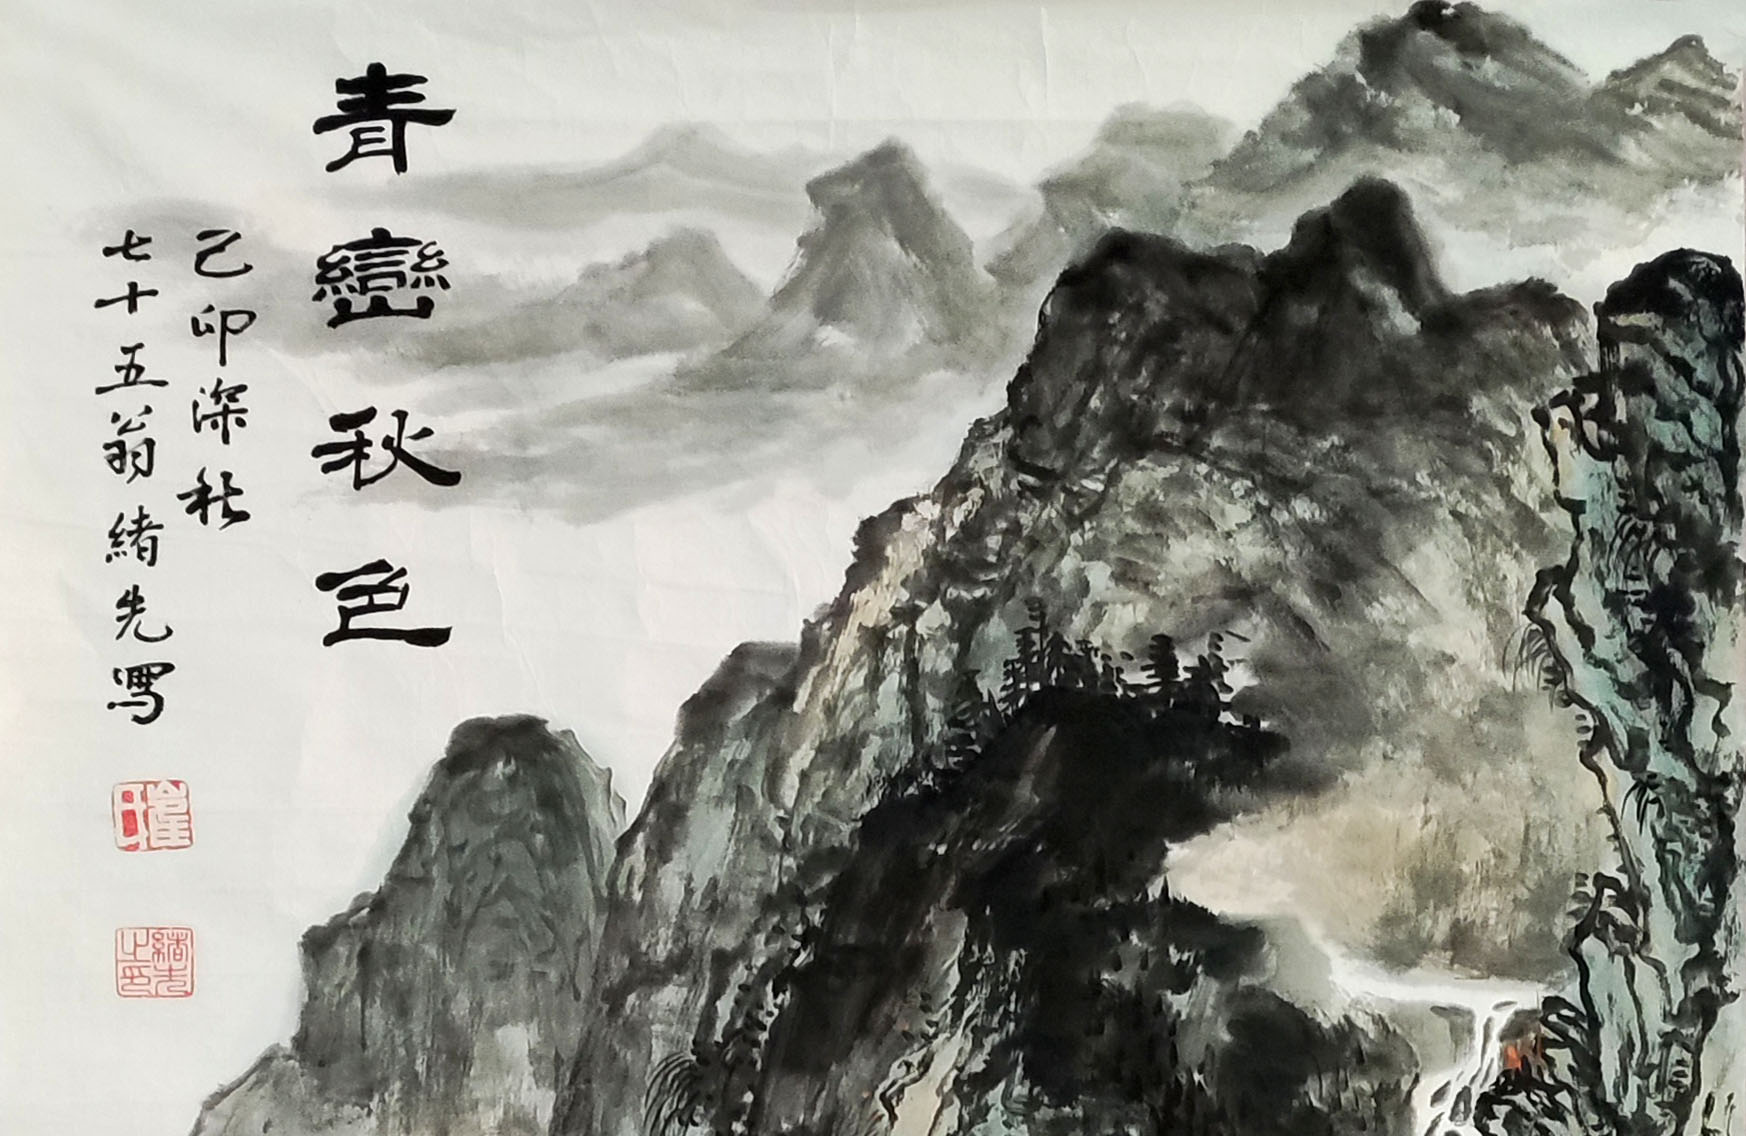 青巒秋色
己卯深秋
七十五翁緒先寫
緒先之印